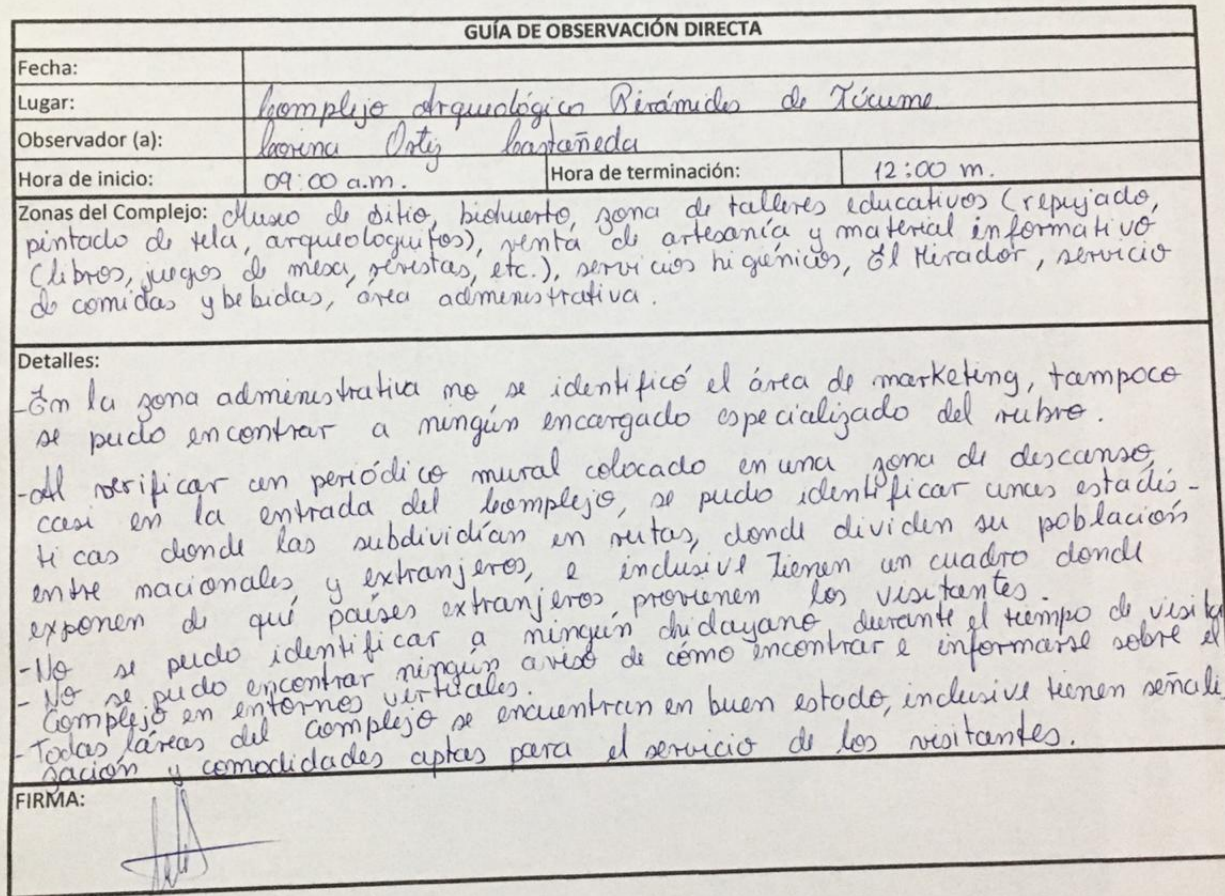 GUÍA DE OBSERVACIÓN DIRECTA
Fecha:
Lugar: Complejo Arqueológico Pirámides de Túcume
Observador (a): Corina Ortiz Castañeda
Hora de inicio: 09:00 a.m. Hora de terminación: 12:00 m.
Zonas del Complejo: Museo de sitio, biohuerto, zona de talleres educativos (repujado,
pintado de tela, arqueologuitos), venta de artesanía y material informativo
(libros, juegos de mesa, revistas, etc.), servicios higiénicos, El Mirador, servicio
de comidas y bebidas, área administrativa.
Detalles:
-En la zona administrativa no se identificó el área de marketing, tampoco
se pudo encontrar a ningún encargado especializado del rubro.
-Al verificar un periódico mural colocado en una zona de descanso,
casi en la entrada del Complejo, se pudo identificar unas estadís-
ticas donde las subdividían en rutas, donde dividen su población
entre nacionales, y extranjeros, e inclusive tienen un cuadro donde
exponen de qué países extranjeros provienen los visitantes.
-No se pudo identificar a ningún chiclayano durante el tiempo de visita
- No se pudo encontrar ningún aviso de cómo encontrar e informarse sobre el
Complejo en entornos virtuales.
-Todas láreas del Complejo se encuentran en buen estado, inclusive tienen señali
zación y comodidades aptas para el servicio de los visitantes.
FIRMA: